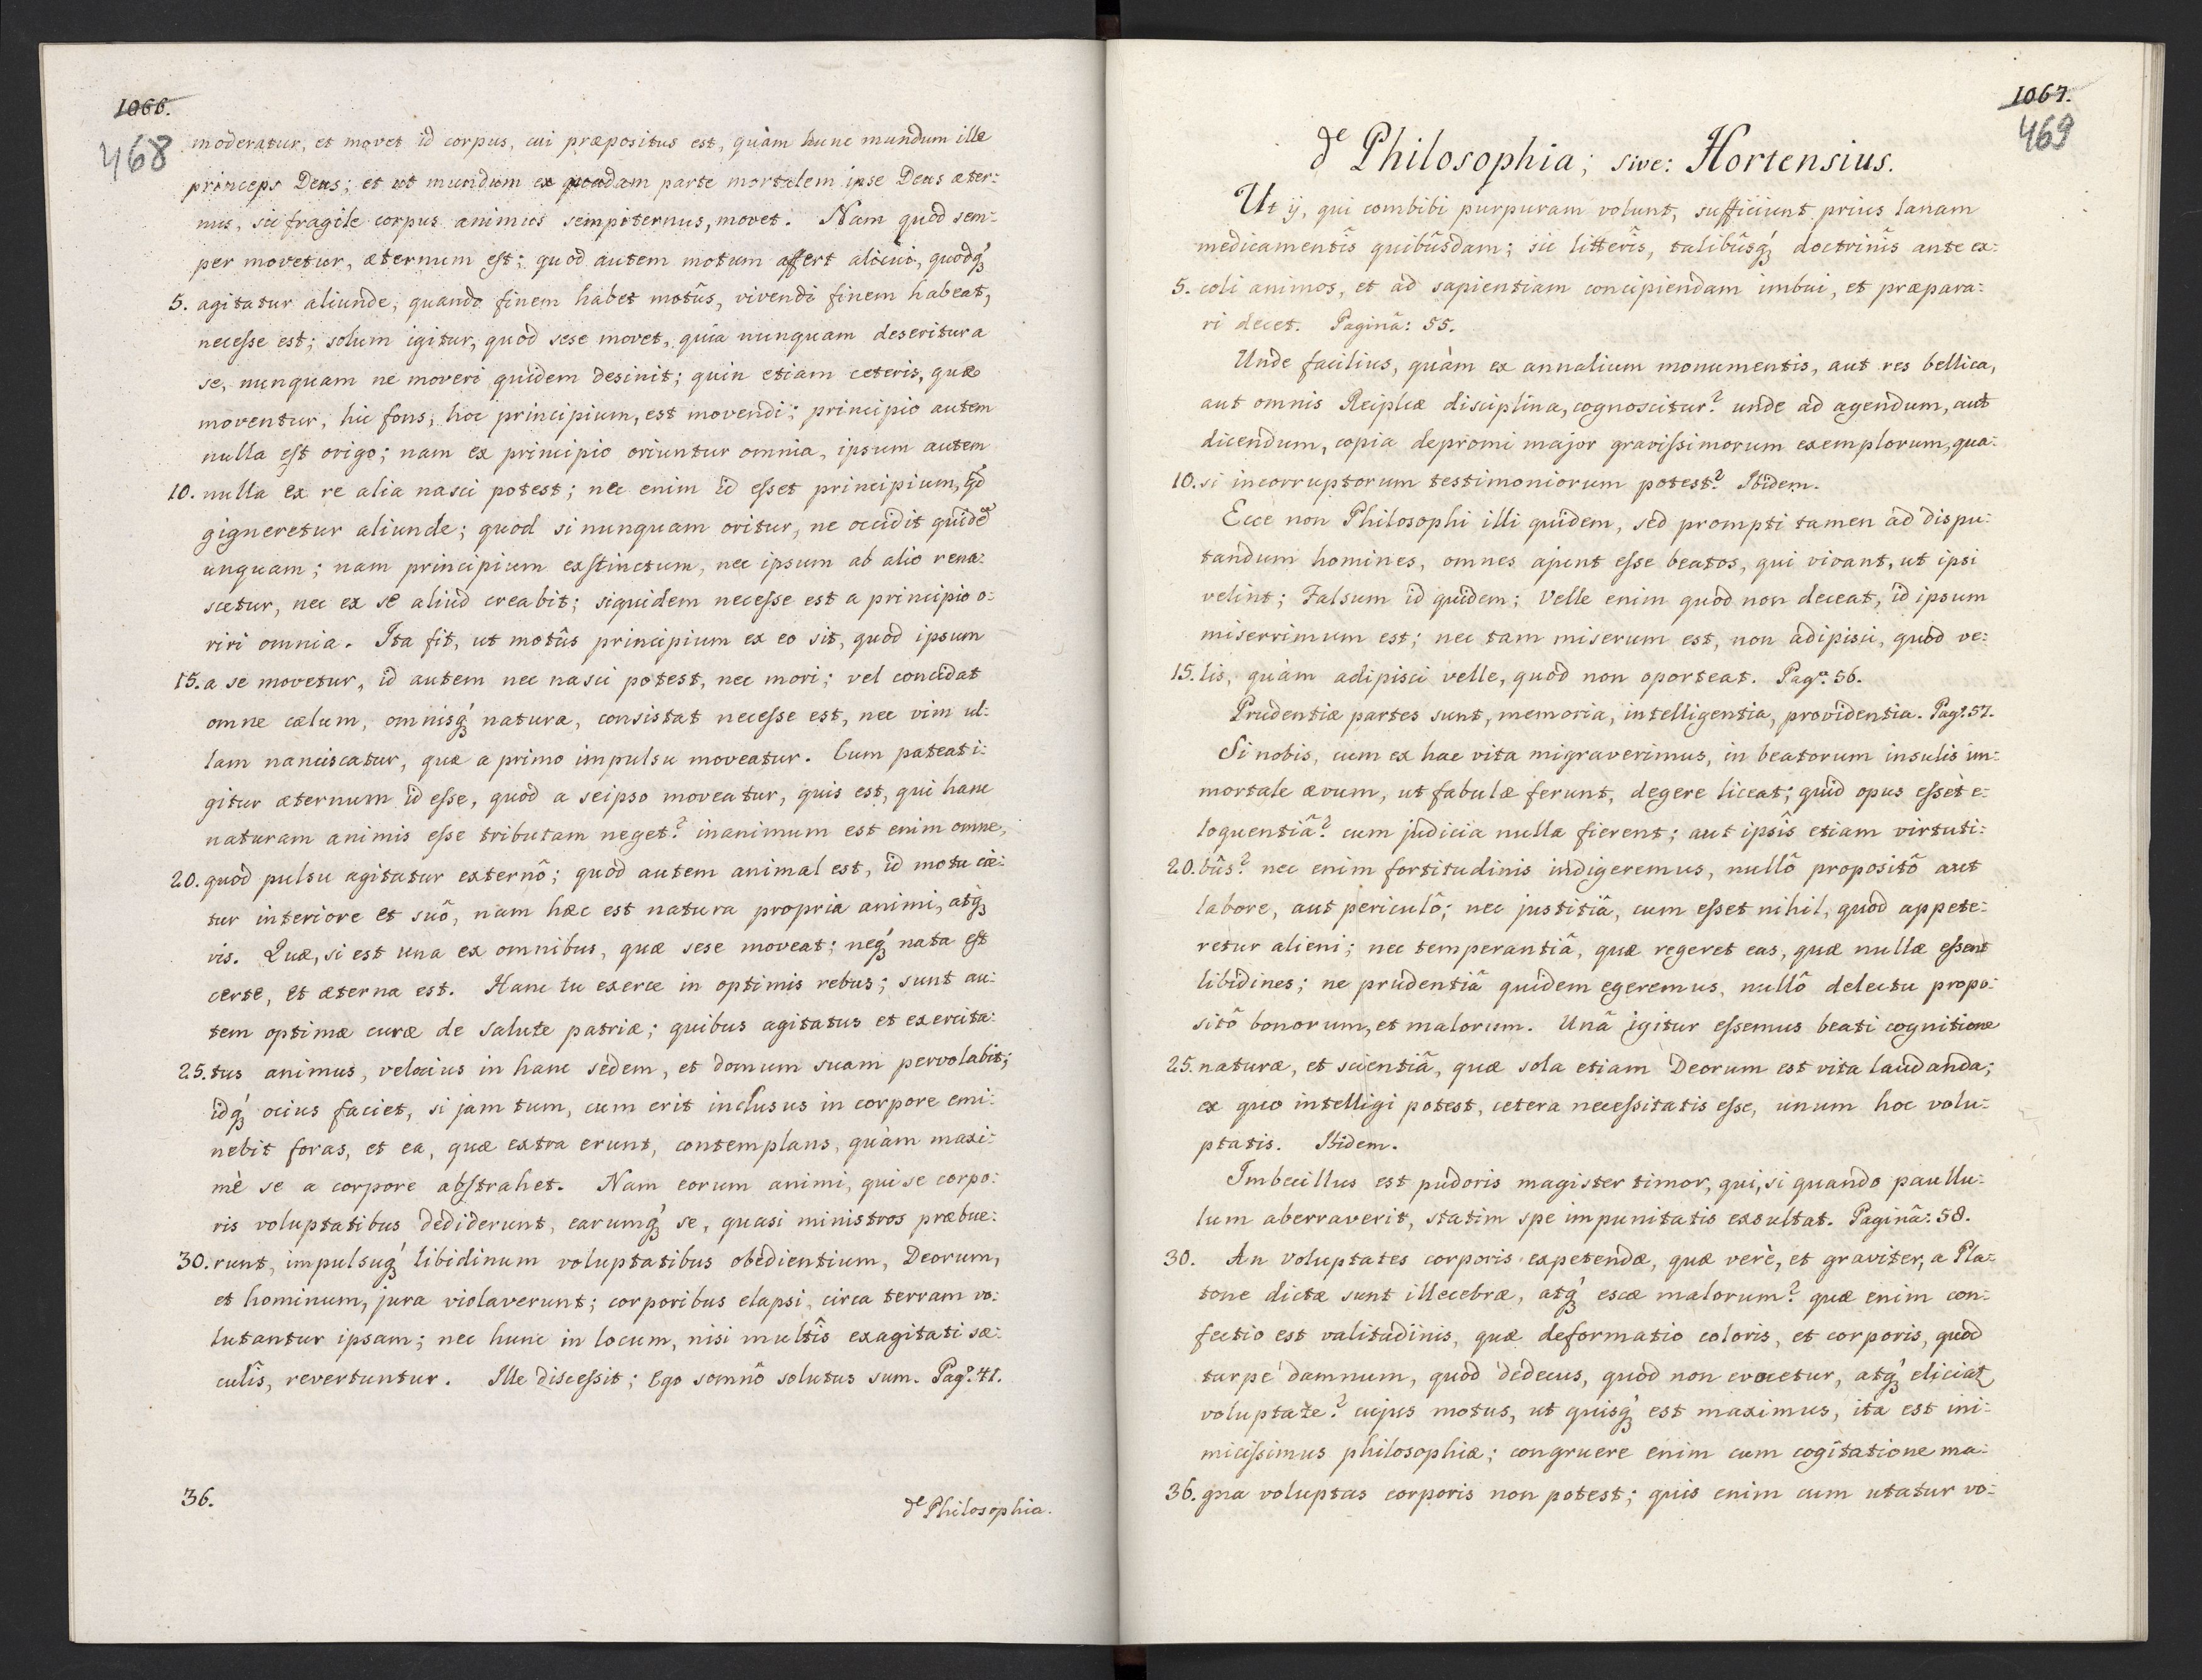 1066.
468
moderatur, et movet id corpus, cui præpositus est, quàm hunc mundum ille
princeps Deus; et ut mundum ex quadam parte mortalem ipse Deus æter:
nus, sic fragile corpus animus sempiternus, movet. Nam quod sem:
per movetur, æternum est; quod autem motum affert alicui, quodq́
5. agitatur aliunde, quando finem habet motûs, vivendi finem habeat,
necesse est; solum igitur, quod sese movet, quia nunquam deseritur a
se, nunquam ne moveri quidem desinit; quin etiam ceteris, quæ
moventur, hic fons, hoc principium, est movendi; principio autem
nulla est origo; nam ex principio oriuntur omnia, ipsum autem
10. nulla ex re alia nasci potest; nec enim id esset principium, qd
gigneretur aliunde; quod si nunquam oritur, ne occidit quidē
unquam; nam principium exstinctum, nec ipsum ab alio rena:
scetur, nec ex se aliud creabit; siquidem necesse est a principio o:
riri omnia. Ita fit, ut motûs principium ex eo sit, quod ipsum
15. a se movetur, id autem nec nasci potest, nec mori; vel concidat
omne cælum, omnisq́ natura, consistat necesse est, nec vim ul:
lam nanciscatur, quæ a primo impulsu moveatur. Cum pateat i:
gitur æternum id esse, quod a seipso moveatur, quis est, qui hanc
naturam animis esse tributam neget? inanimum est enim omne,
20. quod pulsu agitatur externô; quod autem animal est, id motu cie:
tur interiore et suô, nam hæc est natura propria animi, atq́
vis. Quæ, si est una ex omnibus, quæ sese moveat; neq́ nata est
certe, et æterna est. Hanc tu exerce in optimis rebus; sunt au:
tem optimæ curæ de salute patriæ; quibus agitatus et exercita:
25. tus animus, velocius in hanc sedem, et domum suam pervolabit;
idq́ ocius faciet, si jam tum, cum erit inclusus in corpore emi:
nebit foras, et ea, quæ extra erunt, contemplans, quàm maxi:
mè se a corpore abstrahet. Nam eorum animi, qui se corpo:
ris voluptatibus dediderunt, earumq́ se, quasi ministros præbue:
30. runt, impulsuq́ libidinum voluptatibus obedientium, Deorum,
et hominum, jura violaverunt; corporibus elapsi, circa terram vo:
lutantur ipsam; nec hunc in locum, nisi multîs exagitati sæ:
culîs, revertuntur. Ille discessit; Ego somnô solutus sum. Pagª. 41.
36.
de Philosophia.
1067.
469
de Philosophia; sive: Hortensius.
Ut ij, qui combibi purpuram volunt, sufficiunt prius lanam
medicamentîs quibûsdam; sic litterîs, talibûsq́ doctrinîs ante ex:
5. coli animos, et ad sapientiam concipiendam imbui, et præpara:
ri decet. Paginâ: 55.
Unde facilius, quàm ex annalium monumentis, aut res bellica,
aut omnis Reiplicæ disciplina, cognoscitur? unde ad agendum, aut
dicendum, copia depromi major gravissimorum exemplorum, qua:
10. si incorruptorum testimoniorum potest? Ibidem.
Ecce non Philosophi illi quidem, sed prompti tamen ad dispu:
tandum homines, omnes ajunt esse beatos, qui vivant, ut ipsi
velint; Falsum id quidem; Velle enim quod non deceat, id ipsum
miserrimum est; nec tam miserum est, non adipisci, quod ve:
15. lis, quàm adipisci velle, quod non oporteat. Pagª. 56.
Prudentiæ partes sunt, memoria, intelligentia, providentia. Pagª. 57.
Si nobis, cum ex hac vita migraverimus, in beatorum insulis im:
mortale ævum, ut fabulæ ferunt, degere liceat; quid opus esset e:
loquentiâ? cum judicia nulla fierent; aut ipsîs etiam virtuti:
20. bûs? nec enim fortitudinis indigeremus, nullô propositô aut
labore, aut periculô; nec justitiâ, cum esset nihil, quod appete:
retur alieni; nec temperantiâ, quæ regeret eas, quæ nullæ essent
libidines; ne prudentiâ quidem egeremus, nullô delectu propo:
sitô bonorum, et malorum. Unâ igitur essemus beati cognitione
25. naturæ, et scientiâ, quæ sola etiam Deorum est vita laudanda;
ex quo intelligi potest, cetera necessitatis esse, unum hoc volu:
ptatis. Ibidem.
Imbecillus est pudoris magister timor, qui, si quando paullu:
lum aberraverit, statim spe impunitatis exsultat. Paginâ: 58.
30. An voluptates corporis expetendæ, quæ verè, et graviter, a Pla:
tone dictæ sunt illecebræ, atq́ escæ malorum? quæ enim con:
fectio est valitudinis, quæ deformatio coloris, et corporis, quod
turpe damnum, quod dedecus, quod non evocetur, atq́ eliciat
voluptate? cujus motus, ut quisq́ est maximus, ita est ini:
micissimus philosophiæ; congruere enim cum cogitatione ma:
36. gna voluptas corporis non potest; quis enim cum utatur vo: